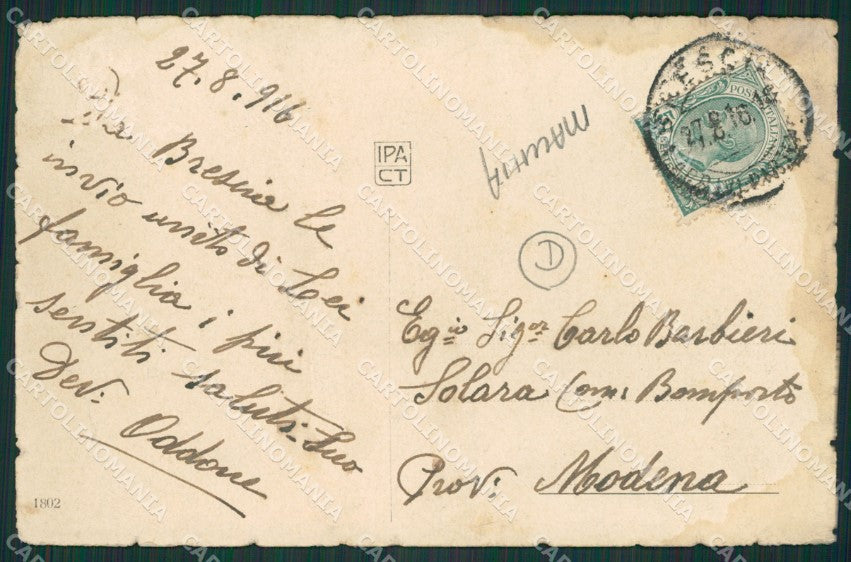 27.8.916
Da Brescia le
invio unito di Lei
famiglia i più
sentiti saluti. Suo
Dev:
Oddone
1802
IPA
CT
D
BRESCIA
27.8.16
POSTE ITALIANE
Egio Sigor Carlo Barbieri
Solara Com: Bomporto
Prov: Modena
CARTOLINOMANIA